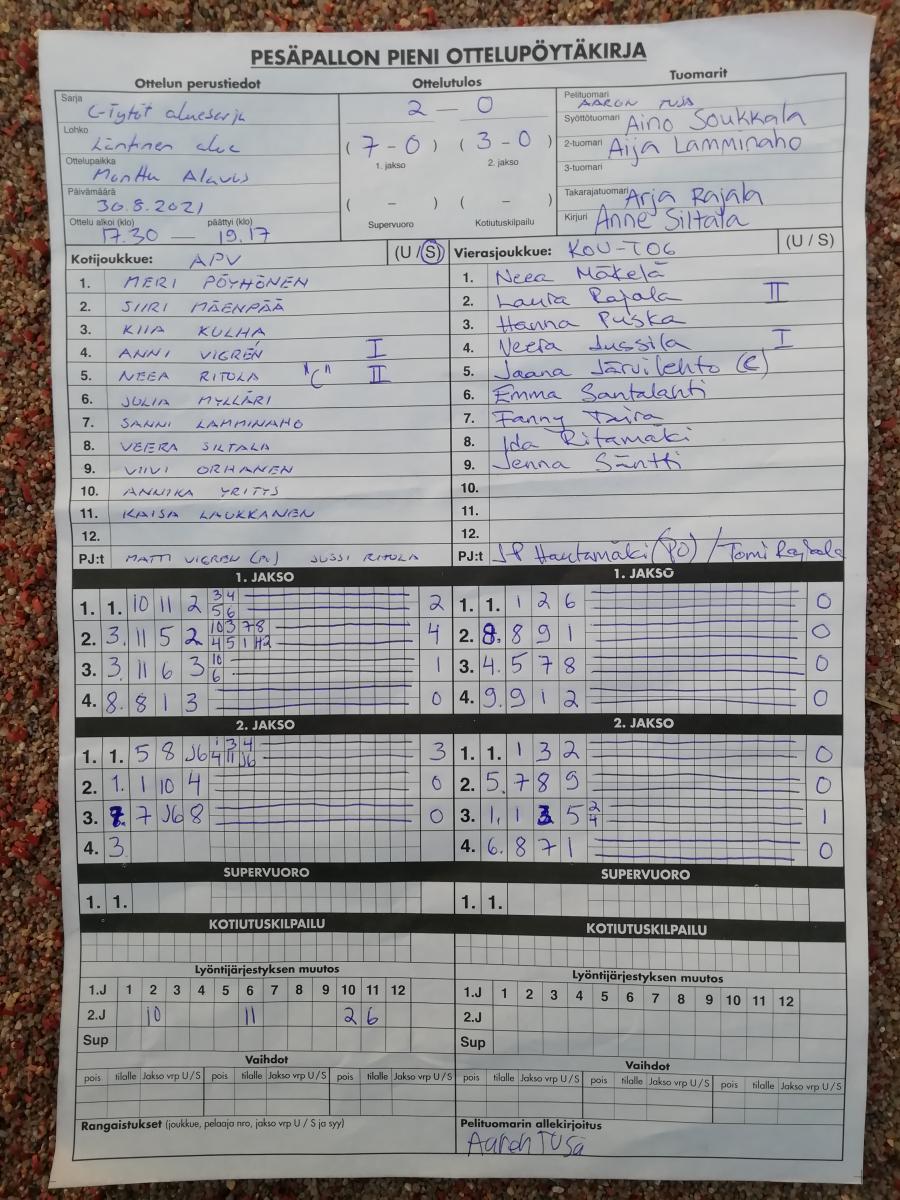 PESÄPALLON PIENI OTTELUPÖYTÄKIRJA
Ottelun perustiedot Ottelutulos Tuomarit
Sarja C-Tytöt aluesarja
Lohko Läntinen alue
Ottelupaikka Monttu Alavus
Päivämäärä 30.8.2021
Ottelu alkoi (klo) päättyi (klo)
17.30 — 19.17
2 — 0
( 7 - 0 ) ( 3 - 0 )
1. jakso 2. jakso
( – ) ( – )
Supervuoro Kotiutuskilpailu
Pelituomari AARON TUSA
Syöttötuomari Aino Soukkala
2-tuomari Aija Lamminaho
3-tuomari
Takarajatuomari Arja Rajala
Kirjuri Anne Siltala
Kotijoukkue: APV (U / S)
1. MERI PÖYHÖNEN
2. SIIRI MÄENPÄÄ
3. KIIA KULHA
4. ANNI VIGREN I
5. NEEA RITOLA "C" II
6. JULIA MYLLÄRI
7. SANNI LAMMINAHO
8. VEERA SILTALA
9. VIIVI ORHANEN
10. ANNIKA YRITYS
11. KAISA LAUKKANEN
12.
PJ:t MATTI VIGREN JUSSI RITOLA
Vierasjoukkue: KOU-TOG (U / S)
1. Neea Mäkelä
2. Laura Rajala II
3. Hanna Puska
4. Neera Jussila I
5. Jaana Järvilehto (C)
6. Emma Santalahti
7. Fanny
8. Ida Ritamäki
9. Jenna Säntti
10.
11.
12.
PJ:t J-P Hautamäki (PO) / Tomi Rajala
1. JAKSO
1. 1. 10 11 2 3 4 5 6 2
2. 3. 11 5 2 10 3 7 8 4 5 1 4
3. 3. 11 6 3 10 6 1
4. 8. 8 1 3 0
1. JAKSO
1. 1. 1 2 6 0
2. 8. 8 9 1 0
3. 4. 5 7 8 0
4. 9. 9 1 2 0
2. JAKSO
1. 1. 5 8 J6 1 3 4 4 11 J6 3
2. 1. 1 10 4 0
3. 7. 7 J6 8 0
4. 3.
2. JAKSO
1. 1. 1 3 2 0
2. 5. 7 8 9 0
3. 1. 1 3 5 2 4 1
4. 6. 8 7 1 0
SUPERVUORO
1. 1.
SUPERVUORO
1. 1.
KOTIUTUSKILPAILU
KOTIUTUSKILPAILU
Lyöntijärjestyksen muutos
1.J 1 2 3 4 5 6 7 8 9 10 11 12
2.J 10 11 2 6
Sup
Lyöntijärjestyksen muutos
1.J 1 2 3 4 5 6 7 8 9 10 11 12
2.J
Sup
Vaihdot
pois tilalle Jakso vrp U / S pois tilalle Jakso vrp U / S pois tilalle Jakso vrp U / S
Vaihdot
pois tilalle Jakso vrp U / S pois tilalle Jakso vrp U / S pois tilalle Jakso vrp U / S
Rangaistukset (joukkue, pelaaja nro, jakso vrp U / S ja syy)
Pelituomarin allekirjoitus
Aaron Tusa